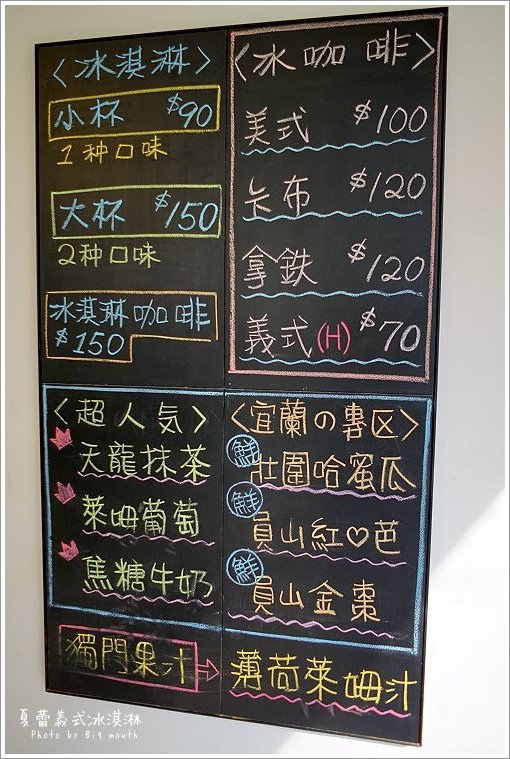 〈冰淇淋〉
小杯 $90
1种口味
大杯 $150
2种口味
冰淇淋咖啡
$150
〈冰咖啡〉
美式 $100
卡布 $120
拿鉄 $120
義式(H) $70
〈超人気〉
天龍抹茶
萊姆葡萄
焦糖牛奶
〈宜蘭の專区〉
鮮 壯圍哈蜜瓜
鮮 員山紅♡芭
鮮 員山金棗
獨門果汁→薄荷萊姆汁
夏蕾義式冰淇淋
Photo by Big mouth